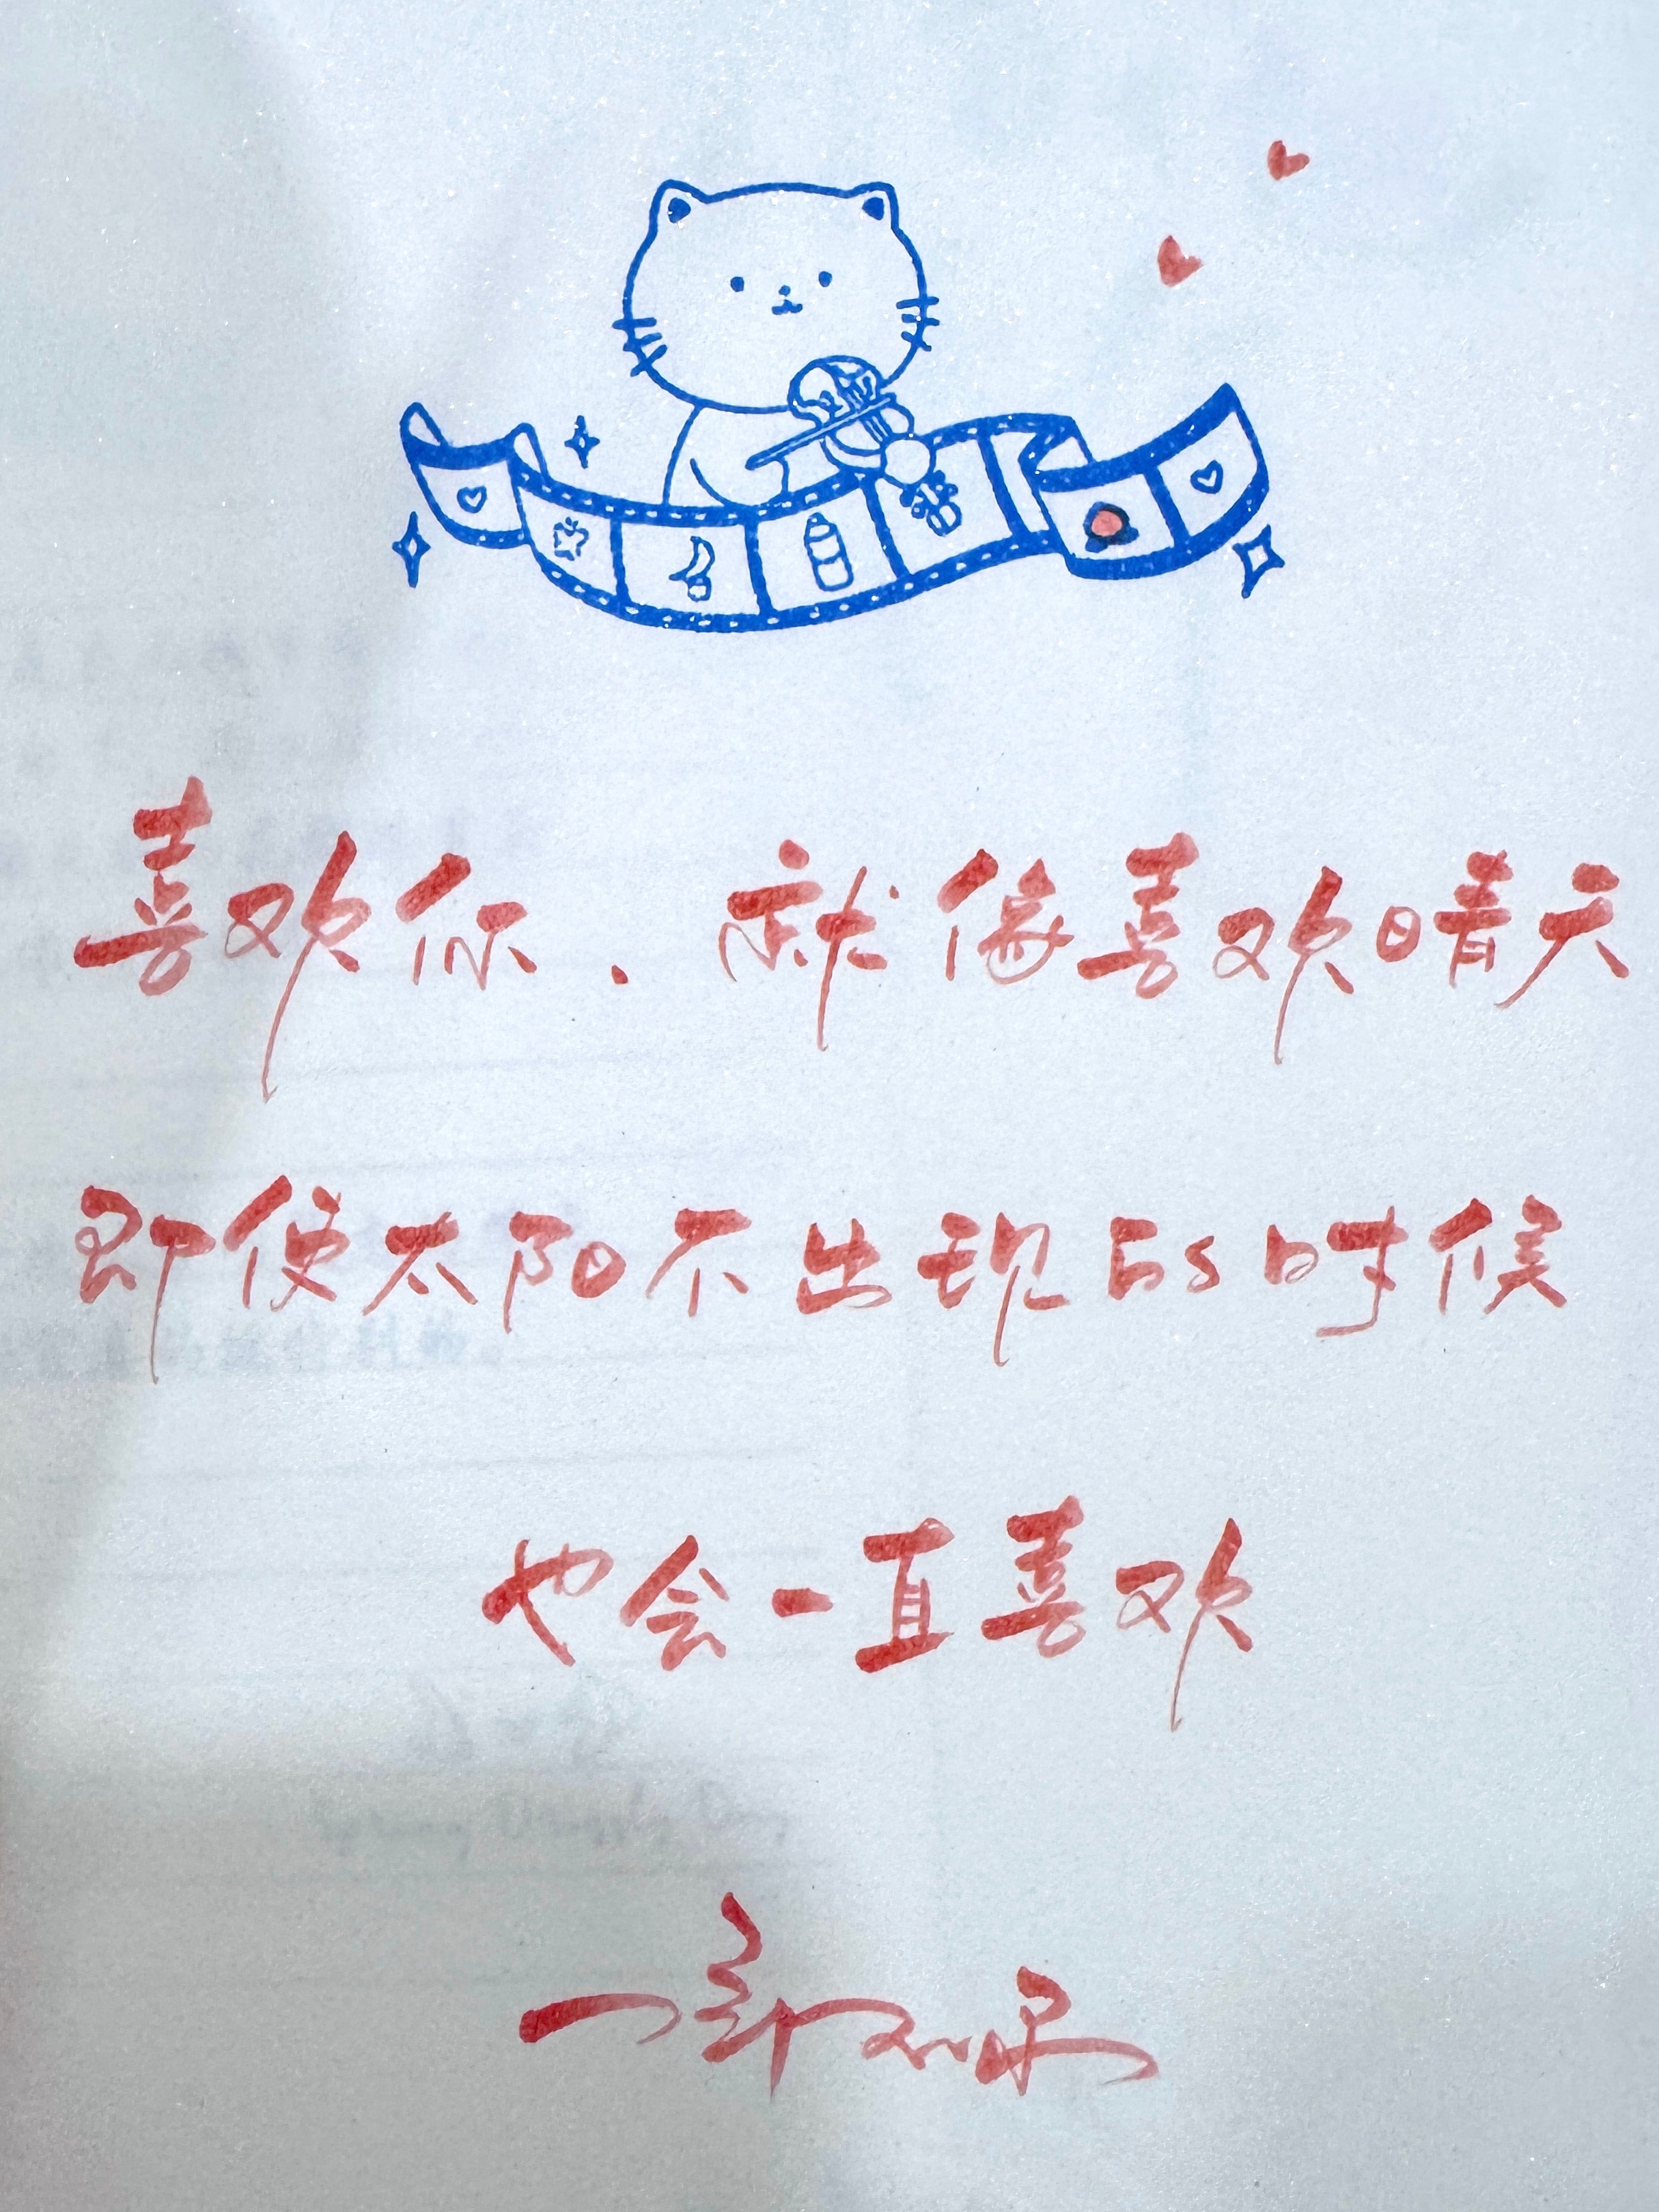 喜欢你，就像喜欢晴天
即使太阳不出现的时候
也会一直喜欢